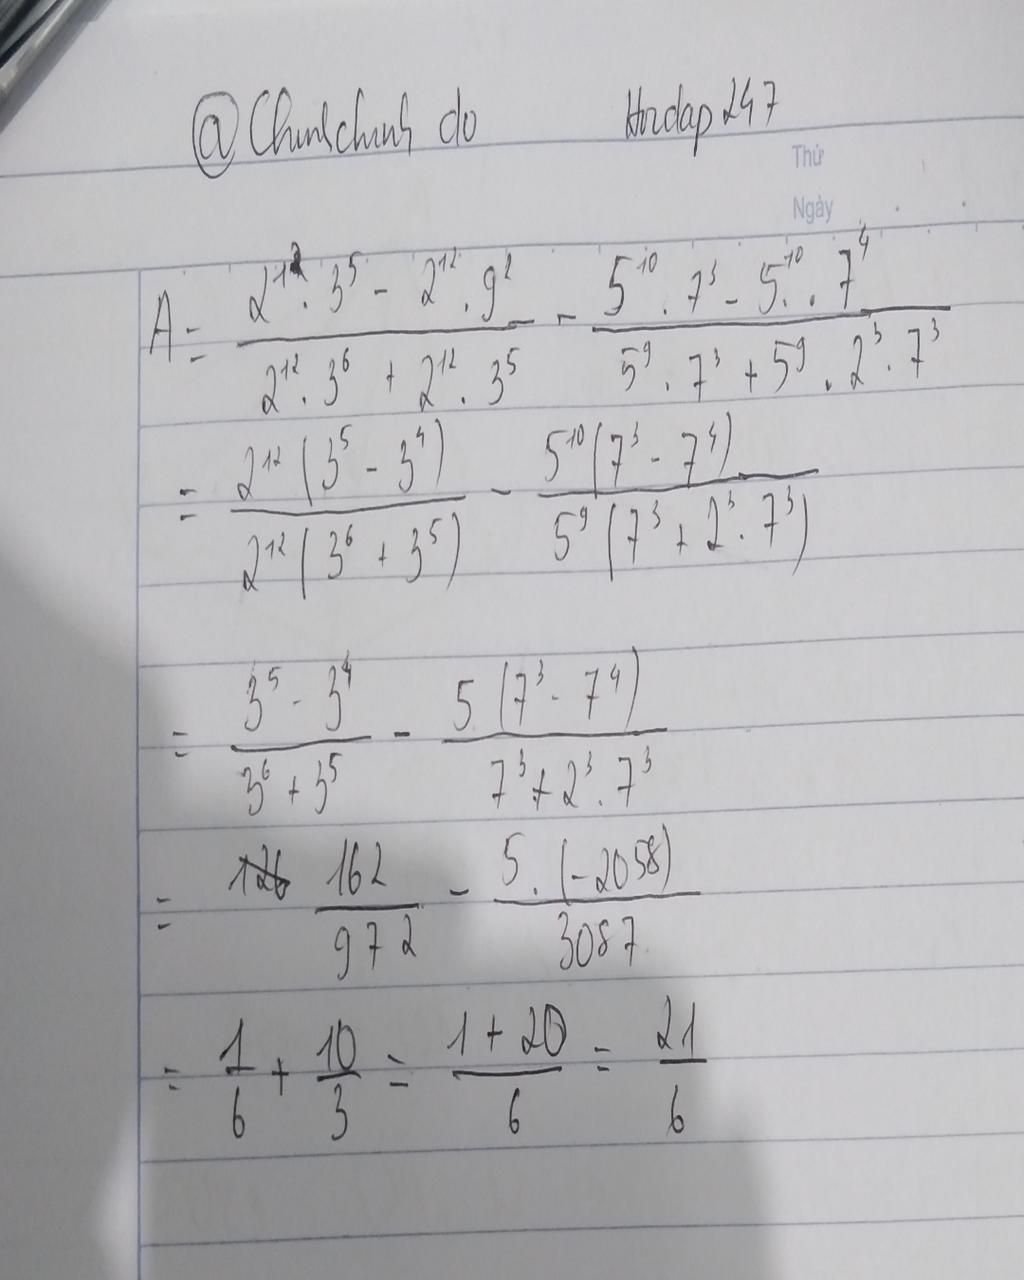 @Chinhchinh do Hoidap247
Thứ
Ngày
A = \frac{2^{12} . 3^5 - 2^{12} . 9^2}{2^{12} . 3^6 + 2^{12} . 3^5} - \frac{5^{10} . 7^3 - 5^{10} . 7^4}{5^9 . 7^3 + 5^9 . 2^3 . 7^3}
= \frac{2^{12} (3^5 - 3^4)}{2^{12} (3^6 + 3^5)} - \frac{5^{10} (7^3 - 7^4)}{5^9 (7^3 + 2^3 . 7^3)}
= \frac{3^5 - 3^4}{3^6 + 3^5} - \frac{5 (7^3 - 7^4)}{7^3 + 2^3 . 7^3}
= \frac{162}{972} - \frac{5 . (-2058)}{3087}
= \frac{1}{6} + \frac{10}{3} = \frac{1 + 20}{6} = \frac{21}{6}